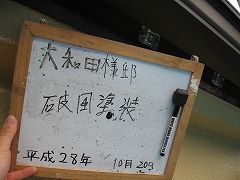 大和田様邸
破風塗装
平成28年 10月20日